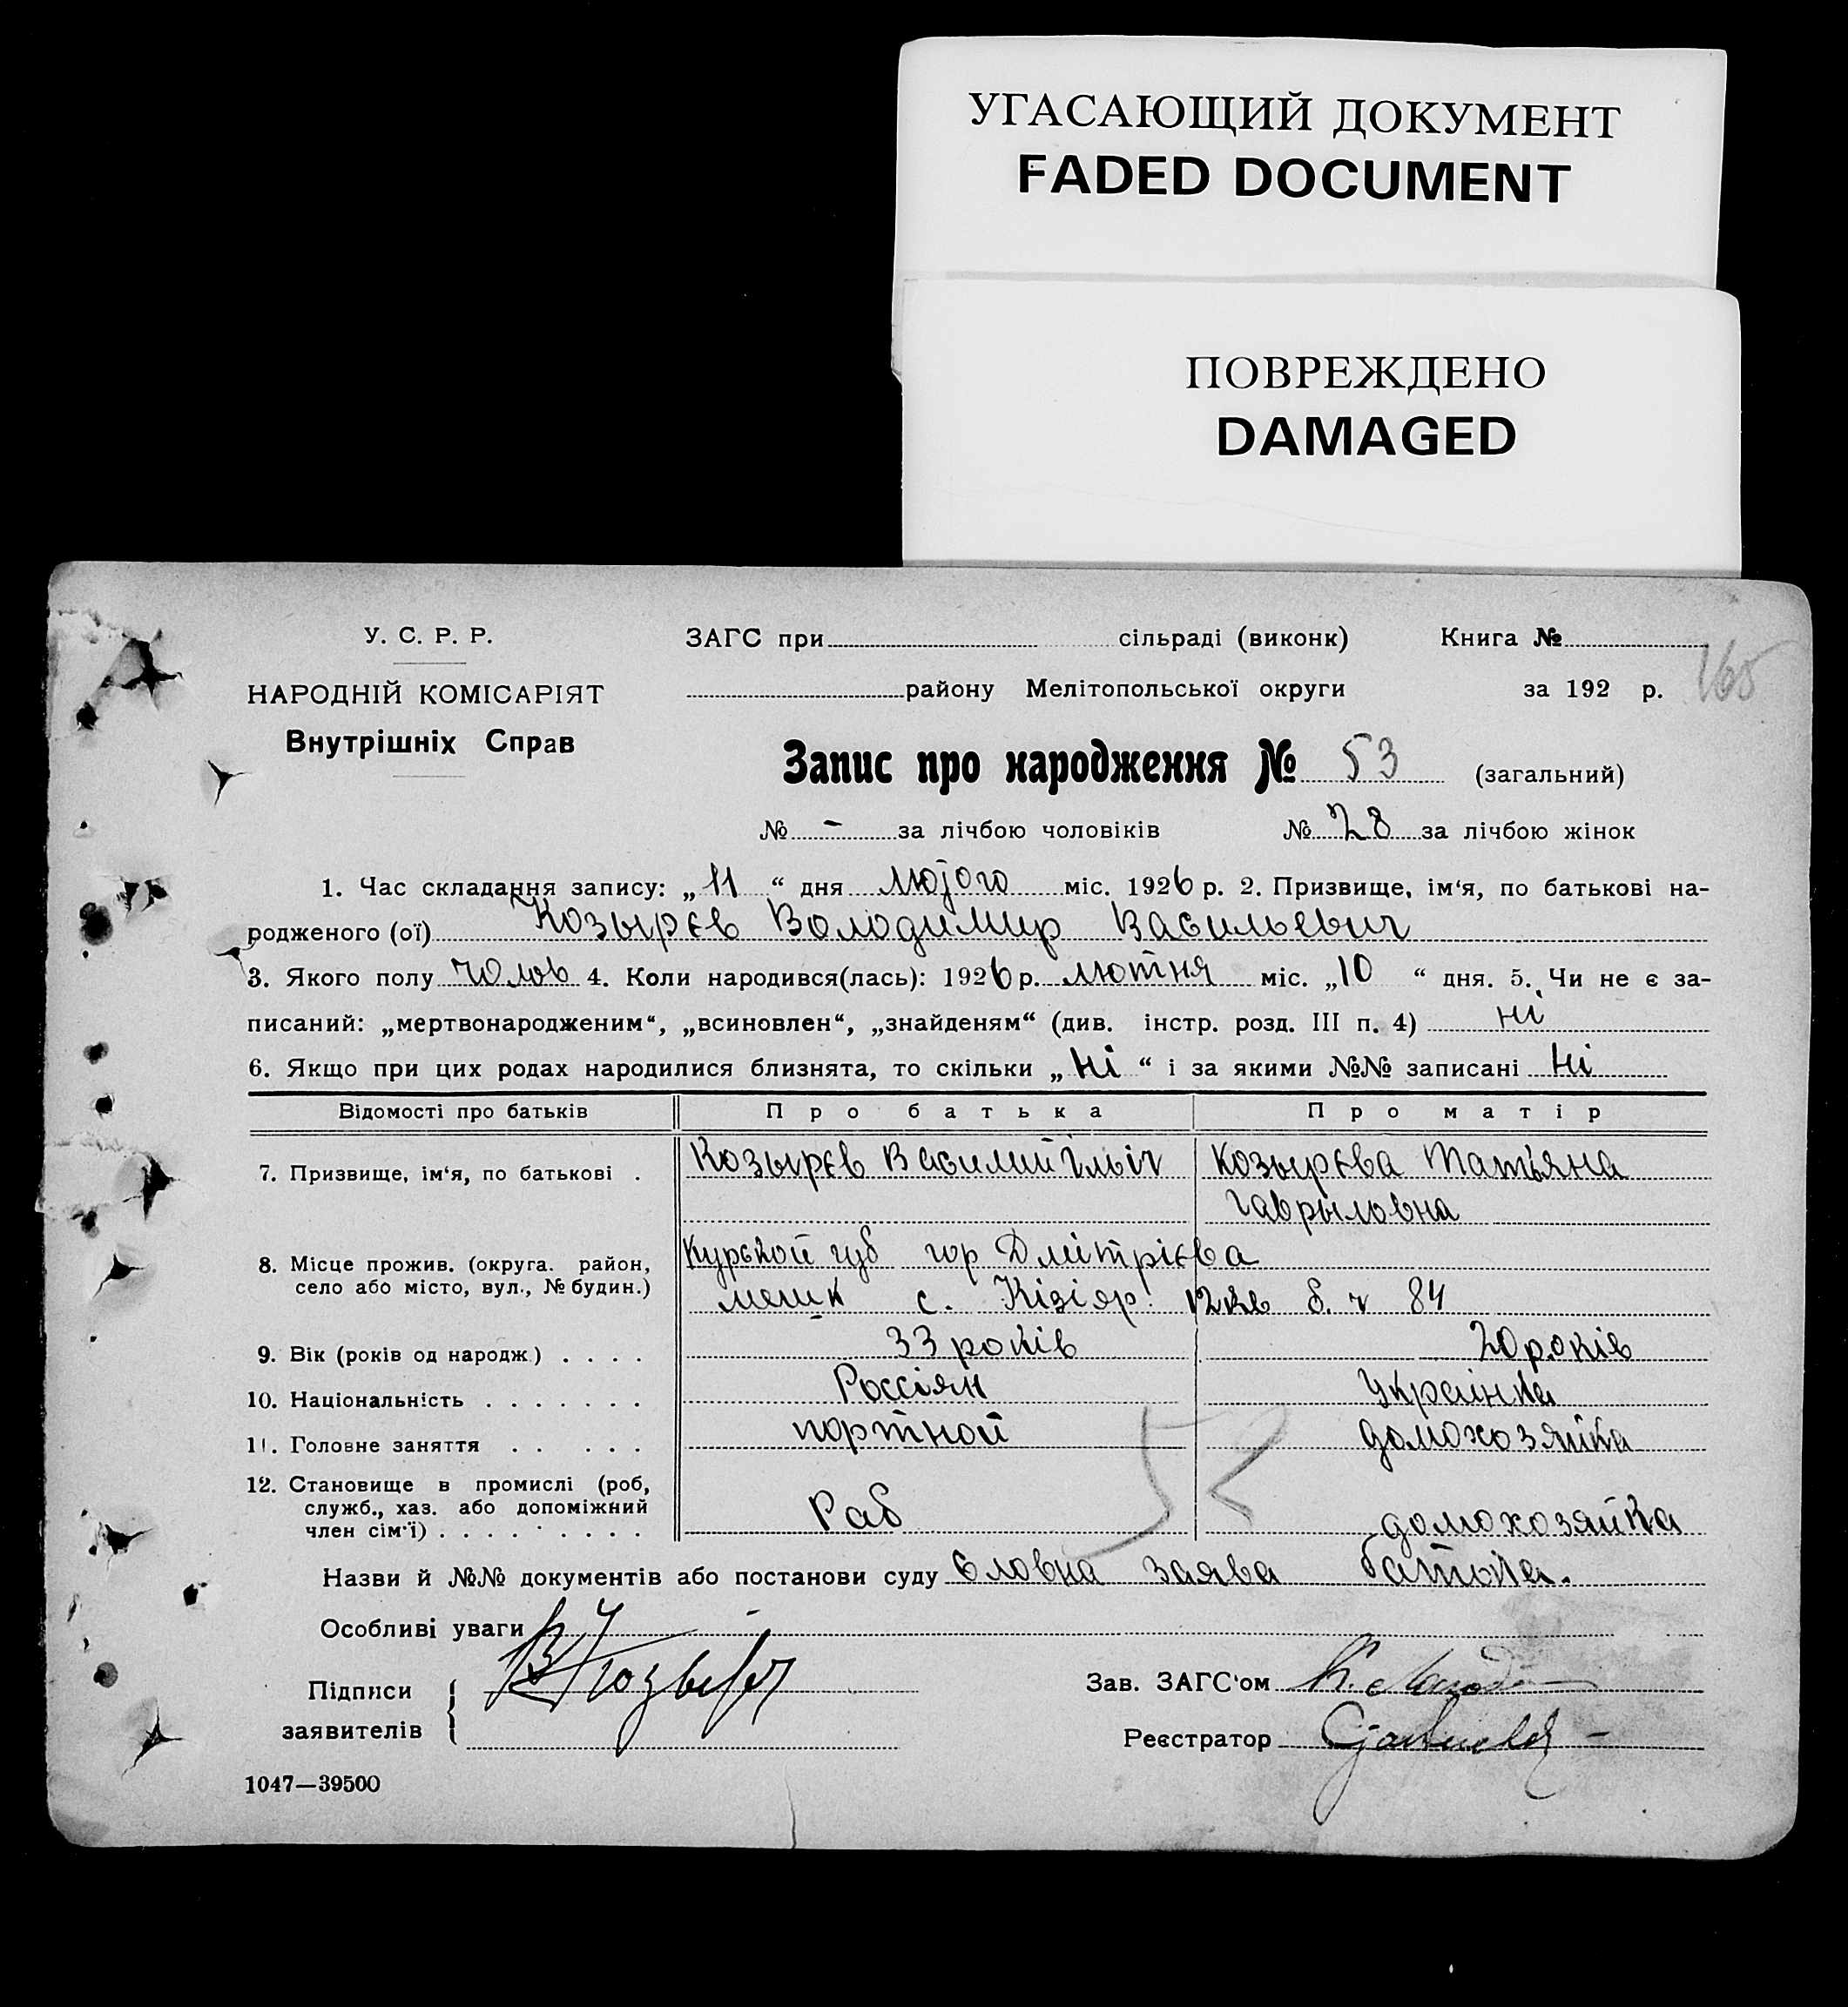 УГАСАЮЩИЙ ДОКУМЕНТ
FADED DOCUMENT
ПОВРЕЖДЕНО
DAMAGED
У. С. Р. Р.
НАРОДНІЙ КОМІСАРІЯТ
Внутрішніх Справ
ЗАГС при сільраді (виконк) Книга №
району Мелітопольської округи за 192 р. 165
Запис про народження № 53 (загальний)
№ - за лічбою чоловіків № 28 за лічбою жінок
1. Час складання запису: „11“ дня лютого міс. 1926 р. 2. Призвище, ім‘я, по батькові на-
родженого (ої) Козырєв Володимир Васильевич
3. Якого полу чолов 4. Коли народився(лась): 1926 р. лютня міс. „10“ дня. 5. Чи не є за-
писаний: „мертвонародженим“, „всиновлен“, „знайденям“ (див. інстр. розд. III п. 4) ні
6. Якщо при цих родах народилися близнята, то скільки „Ні“ і за якими №№ записані Ні
Відомості про батьків Про батька Про матір
7. Призвище, ім‘я, по батькові . Козырєв Василий Ільіч Козырєва Татьяна
Гаврыловна
8. Місце прожив. (округа. район, Курской губ гор Дмітрієва
село або місто, вул., № будин.) мешк с. Кізіяр 12 кв б. ч 84
9. Вік (років од народж) . . . . 33 років 20 років
10. Національність . . . . . . . Россіян Українка
11. Головне заняття . . . . . портной домохозяйка
52
12. Становище в промислі (роб,
служб., хаз. або допоміжний
член сім‘ї) . . . . . . . . . Раб домохозяйка
Назви й №№ документів або постанови суду Словна заява батька.
Особливі уваги
Підписи
заявителів
Зав. ЗАГС‘ом
Реєстратор
1047—39500